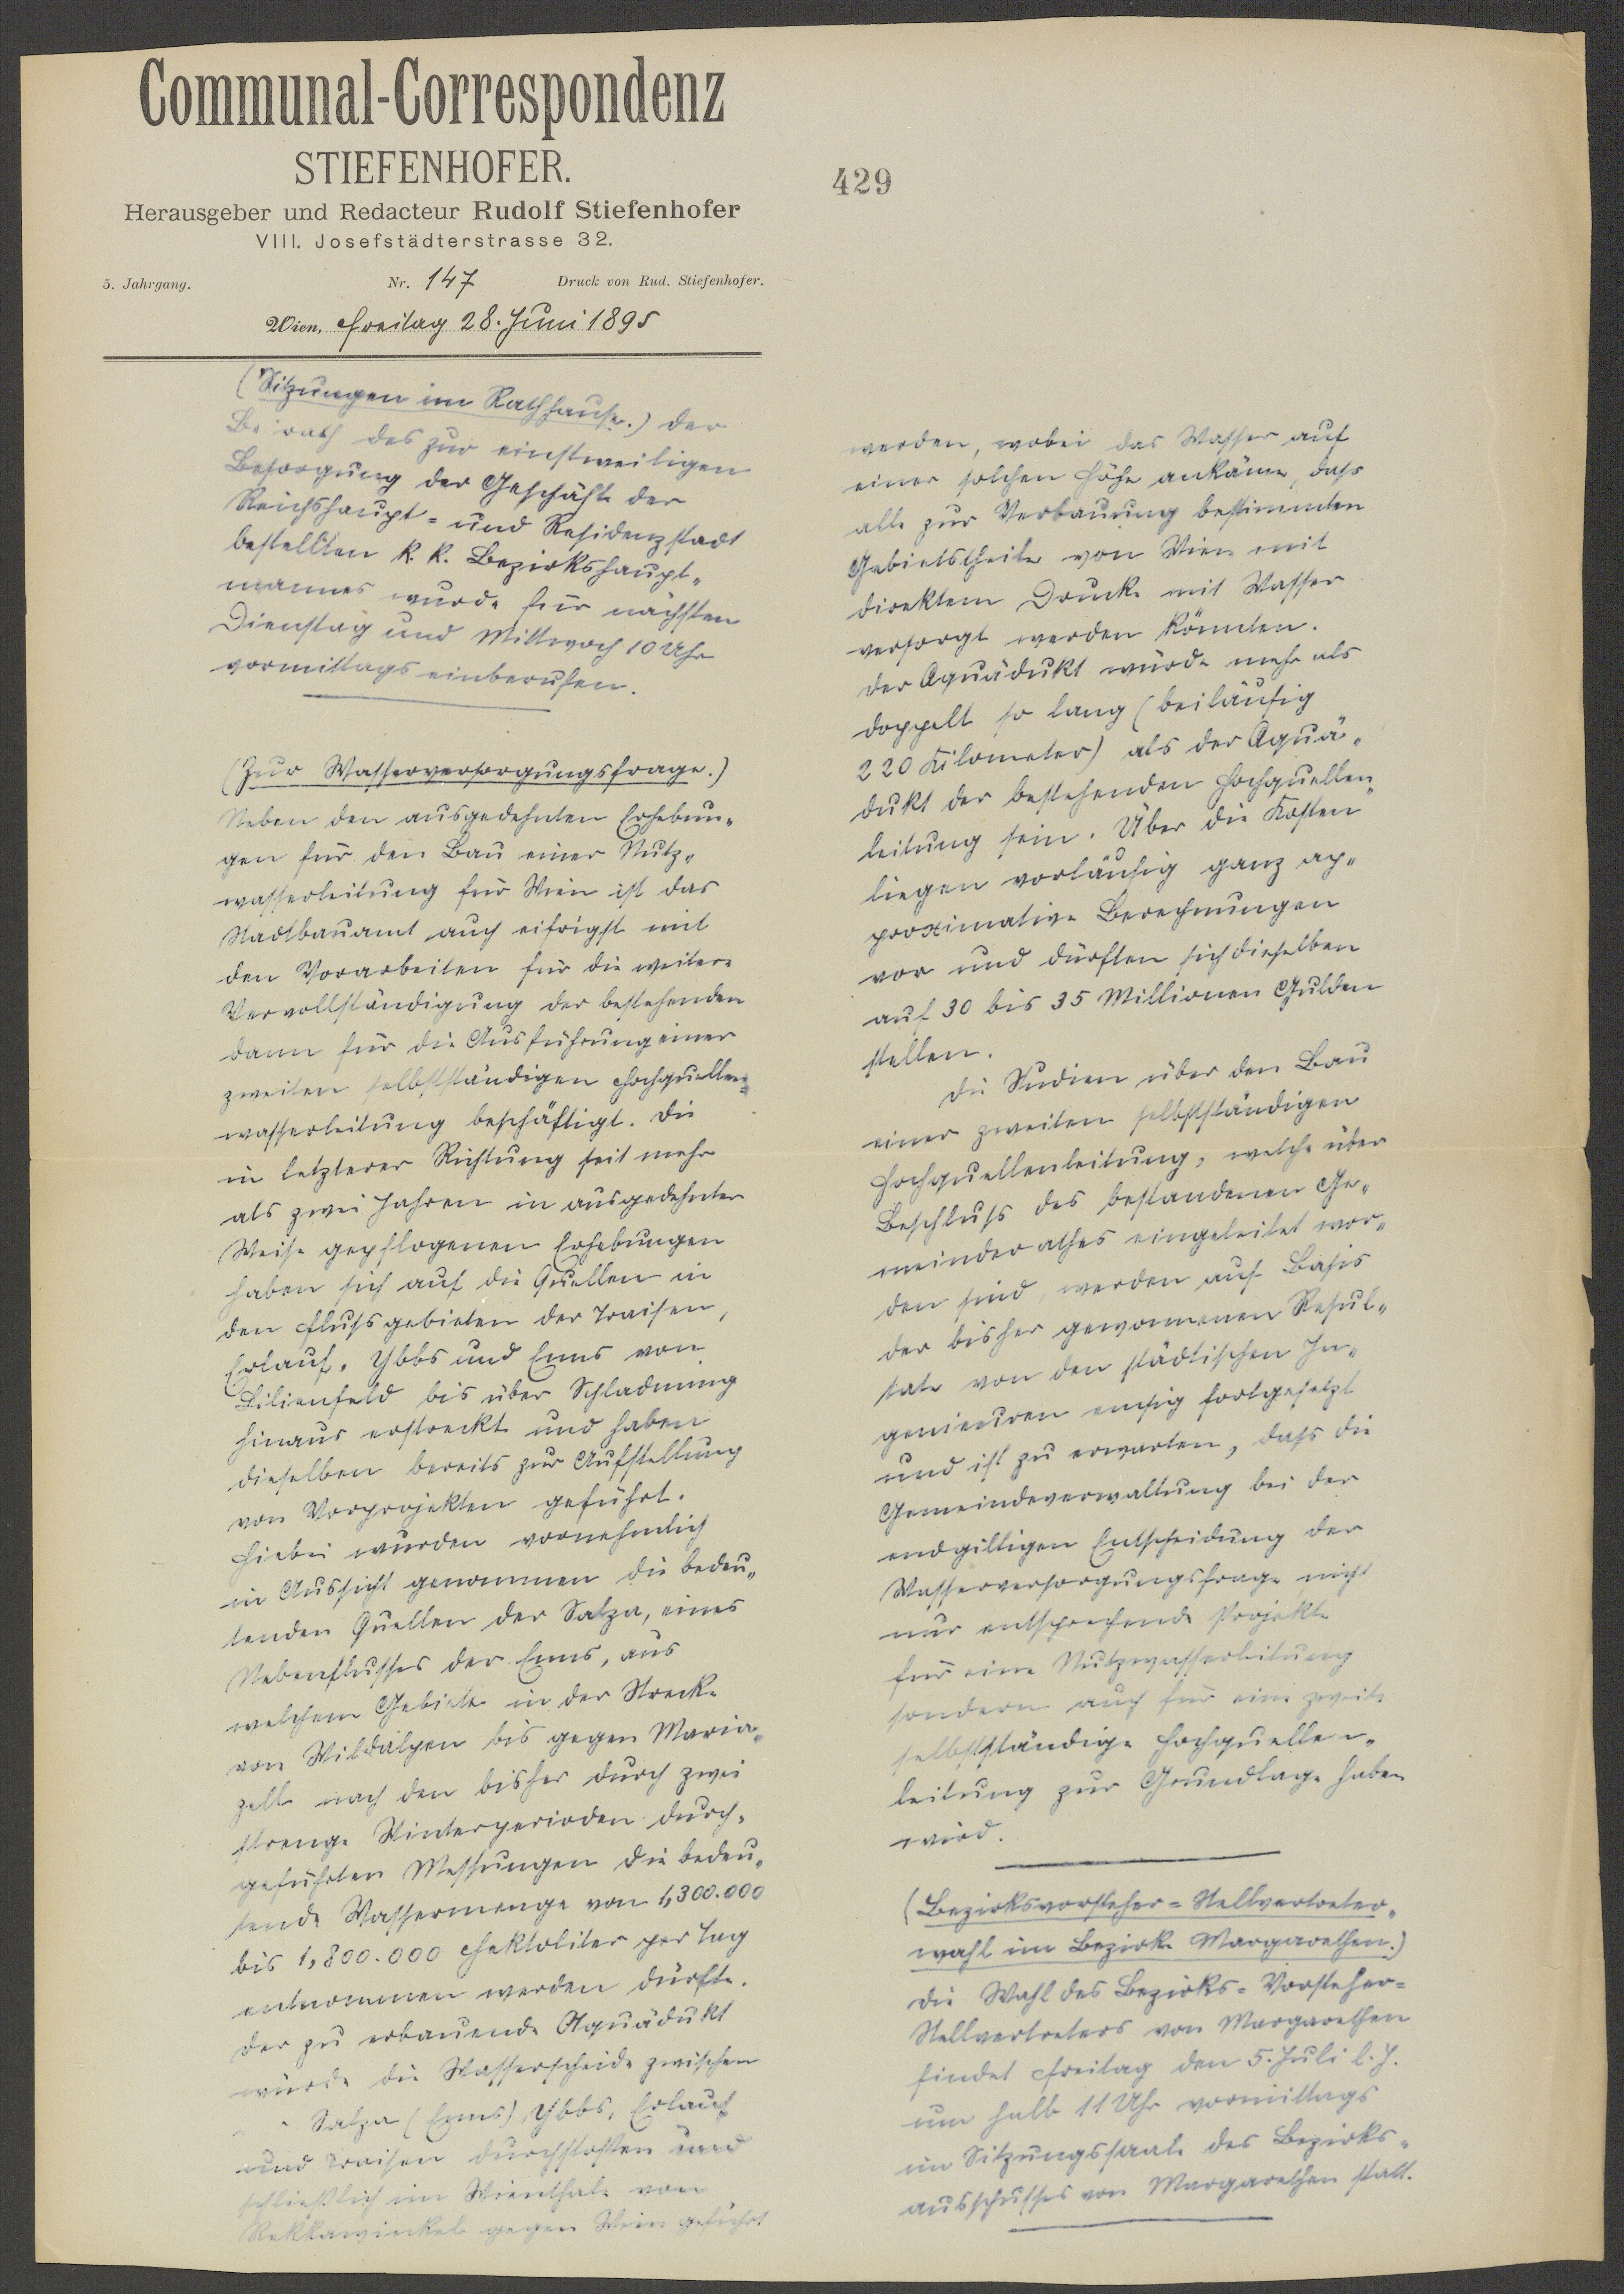 Communal-Correspondenz
STIEFENHOFER.
429
Herausgeber und Redacteur Rudolf Stiefenhofer
VIII. Josefstädterstrasse 32.
5. Jahrgang. Nr. 147 Druck von Rud. Stiefenhofer.
Wien, Freitag 28. Juni 1895
(Sitzungen im Rathhause.) Der
Beirath des zur einstweiligen
Besorgung der Geschäfte der
Reichshaupt- und Residenzstadt
bestellten k. k. Bezirkshaupt-
mannes wurde für nächsten
Dienstag und Mittwoch 10 Uhr
vormittags einberufen.
(Zur Wasserversorgungsfrage.)
Neben den ausgedehnten Erhebun-
gen für den Bau einer Nutz-
wasserleitung für Wien ist das
Stadtbauamt auch eifrigst mit
den Vorarbeiten für die weitere
Vervollständigung der bestehenden
dann für die Ausführung einer
zweiten selbstständigen Hochquellen-
wasserleitung beschäftigt. Die
in letzterer Richtung seit mehr
als zwei Jahren in ausgedehnter
Weise gepflogenen Erhebungen
haben sich auf die Quellen in
den Flussgebieten der Traisen,
Erlauf, Ybbs und Enns von
Lilienfeld bis über Schladming
hinaus erstreckt und haben
dieselben bereits zur Aufstellung
von Vorprojekten geführt.
Hiebei wurden vornehmlich
in Aussicht genommen die bedeu-
tenden Quellen der Salza, eines
Nebenflusses der Enns, aus
welchem Gebiete in der Strecke
von Wildalpen bis gegen Maria-
zell nach den bisher durch zwei
strenge Winterperioden durch-
geführten Messungen die bedeu-
tende Wassermenge von 1,300.000
bis 1,800.000 Hektoliter per Tag
entnommen werden dürfte.
Der zu erbauende Aquädukt
würde die Wasserscheide zwischen
Salza (Enns), Ybbs, Erlauf
und Traisen durchstoßen und
schließlich im Wienthale von
Rekkawinkel gegen Wien geführt
werden, wobei das Wasser auf
einer solchen Höhe ankäme, dass
alle zur Verbauung bestimmten
Gebietstheile von Wien mit
direktem Drucke mit Wasser
versorgt werden könnten.
Der Aquädukt würde mehr als
doppelt so lang (beiläufig
220 Kilometer) als der Aquä-
dukt der bestehenden Hochquellen-
leitung sein. Über die Kosten
liegen vorläufig ganz ap-
proximative Berechnungen
vor und dürften sich dieselben
auf 30 bis 35 Millionen Gulden
stellen.
Die Studien über den Bau
einer zweiten selbstständigen
Hochquellenleitung, welche über
Beschluss des bestandenen Ge-
meinderathes eingeleitet wor-
den sind, werden auf Basis
der bisher gewonnenen Resul-
tate von den städtischen In-
genieuren emsig fortgesetzt
und ist zu erwarten, dass die
Gemeindeverwaltung bei der
endgiltigen Entscheidung der
Wasserversorgungsfrage nicht
nur entsprechende Projekte
für eine Nutzwasserleitung
sondern auch für eine zweite
selbstständige Hochquellen-
leitung zur Grundlage haben
wird.
(Bezirksvorsteher-Stellvertreter-
wahl im Bezirke Margarethen.)
Die Wahl des Bezirks-Vorsteher-
Stellvertreters von Margarethen
findet Freitag den 5. Juli l. J.
um halb 11 Uhr vormittags
im Sitzungssaale des Bezirks-
ausschusses von Margarethen statt.